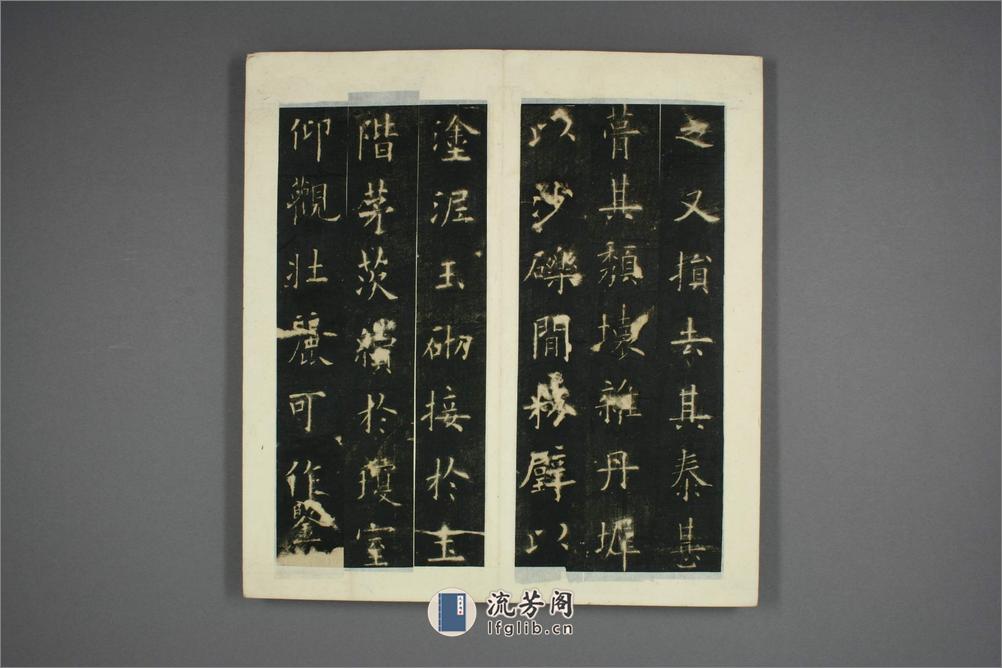 之又損去其泰甚
葺其頹壞雜丹墀
以沙礫間粉壁以
塗泥玉砌接於土
階茅茨續於瓊室
仰觀壯麗可作鑒
流芳阁
lfglib.cn